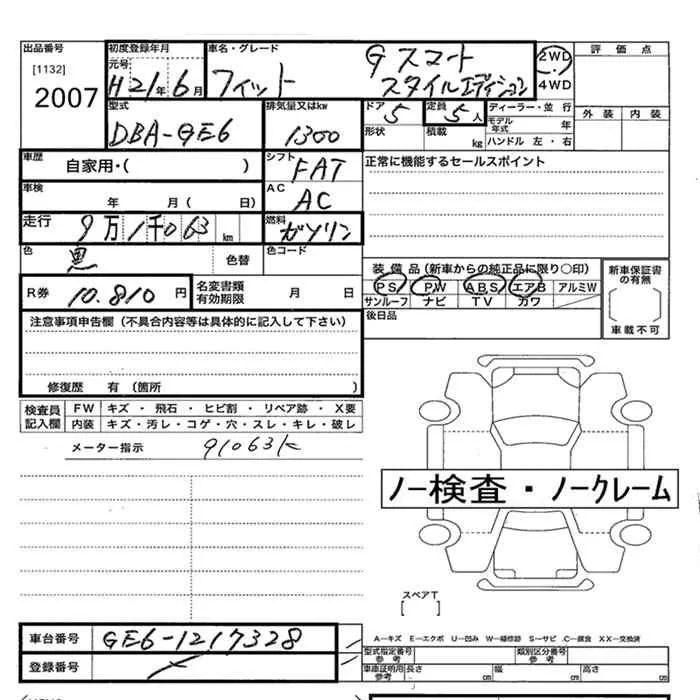 出品番号
[1132]
2007
初度登録年月
元号
H21年6月
車名・グレード
フィット
Gスマート
スタイルエディション
2WD
4WD
評価点
外装 内装
型式
DBA-GE6
排気量又はkw
1300
ドア
5
定員
5人
形状
積載
kg
ディーラー・並行
モデル年式
年
ハンドル 左・右
車歴
自家用・( )
シフト
FAT
正常に機能するセールスポイント
車検
年 月( 日)
AC
AC
走行
9万1千063km
燃料
ガソリン
色
黒
色替
色コード
装備品(新車からの純正品に限り○印)
PS PW ABS エアB アルミW
サンルーフ ナビ TV カワ
後日品
新車保証書
の有無
車載不可
R券
10.810円
名変書類
有効期限
月 日
注意事項申告欄(不具合内容等は具体的に記入して下さい)
修復歴 有(箇所 )
検査員
記入欄
FW キズ・飛石・ヒビ割・リペア跡・X要
内装 キズ・汚レ・コゲ・穴・スレ・キレ・破レ
メーター指示
91063K
ノー検査・ノークレーム
スペアT
[ ]
車台番号
GE6-1217328
登録番号
A―キズ E―エクボ U―凹み W―補修跡 S―サビ C―腐食 XX―交換済
型式指定番号
参考
類別区分番号
参考
車庫証明用
参考
長さ
cm
幅
cm
高さ
cm